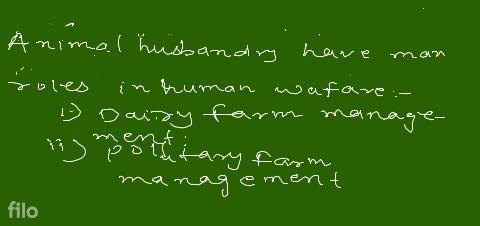 Animal husbandry have man
roles in human wafare:-
i) Dairy farm manage-
ment.
ii) poultary farm
management
filo